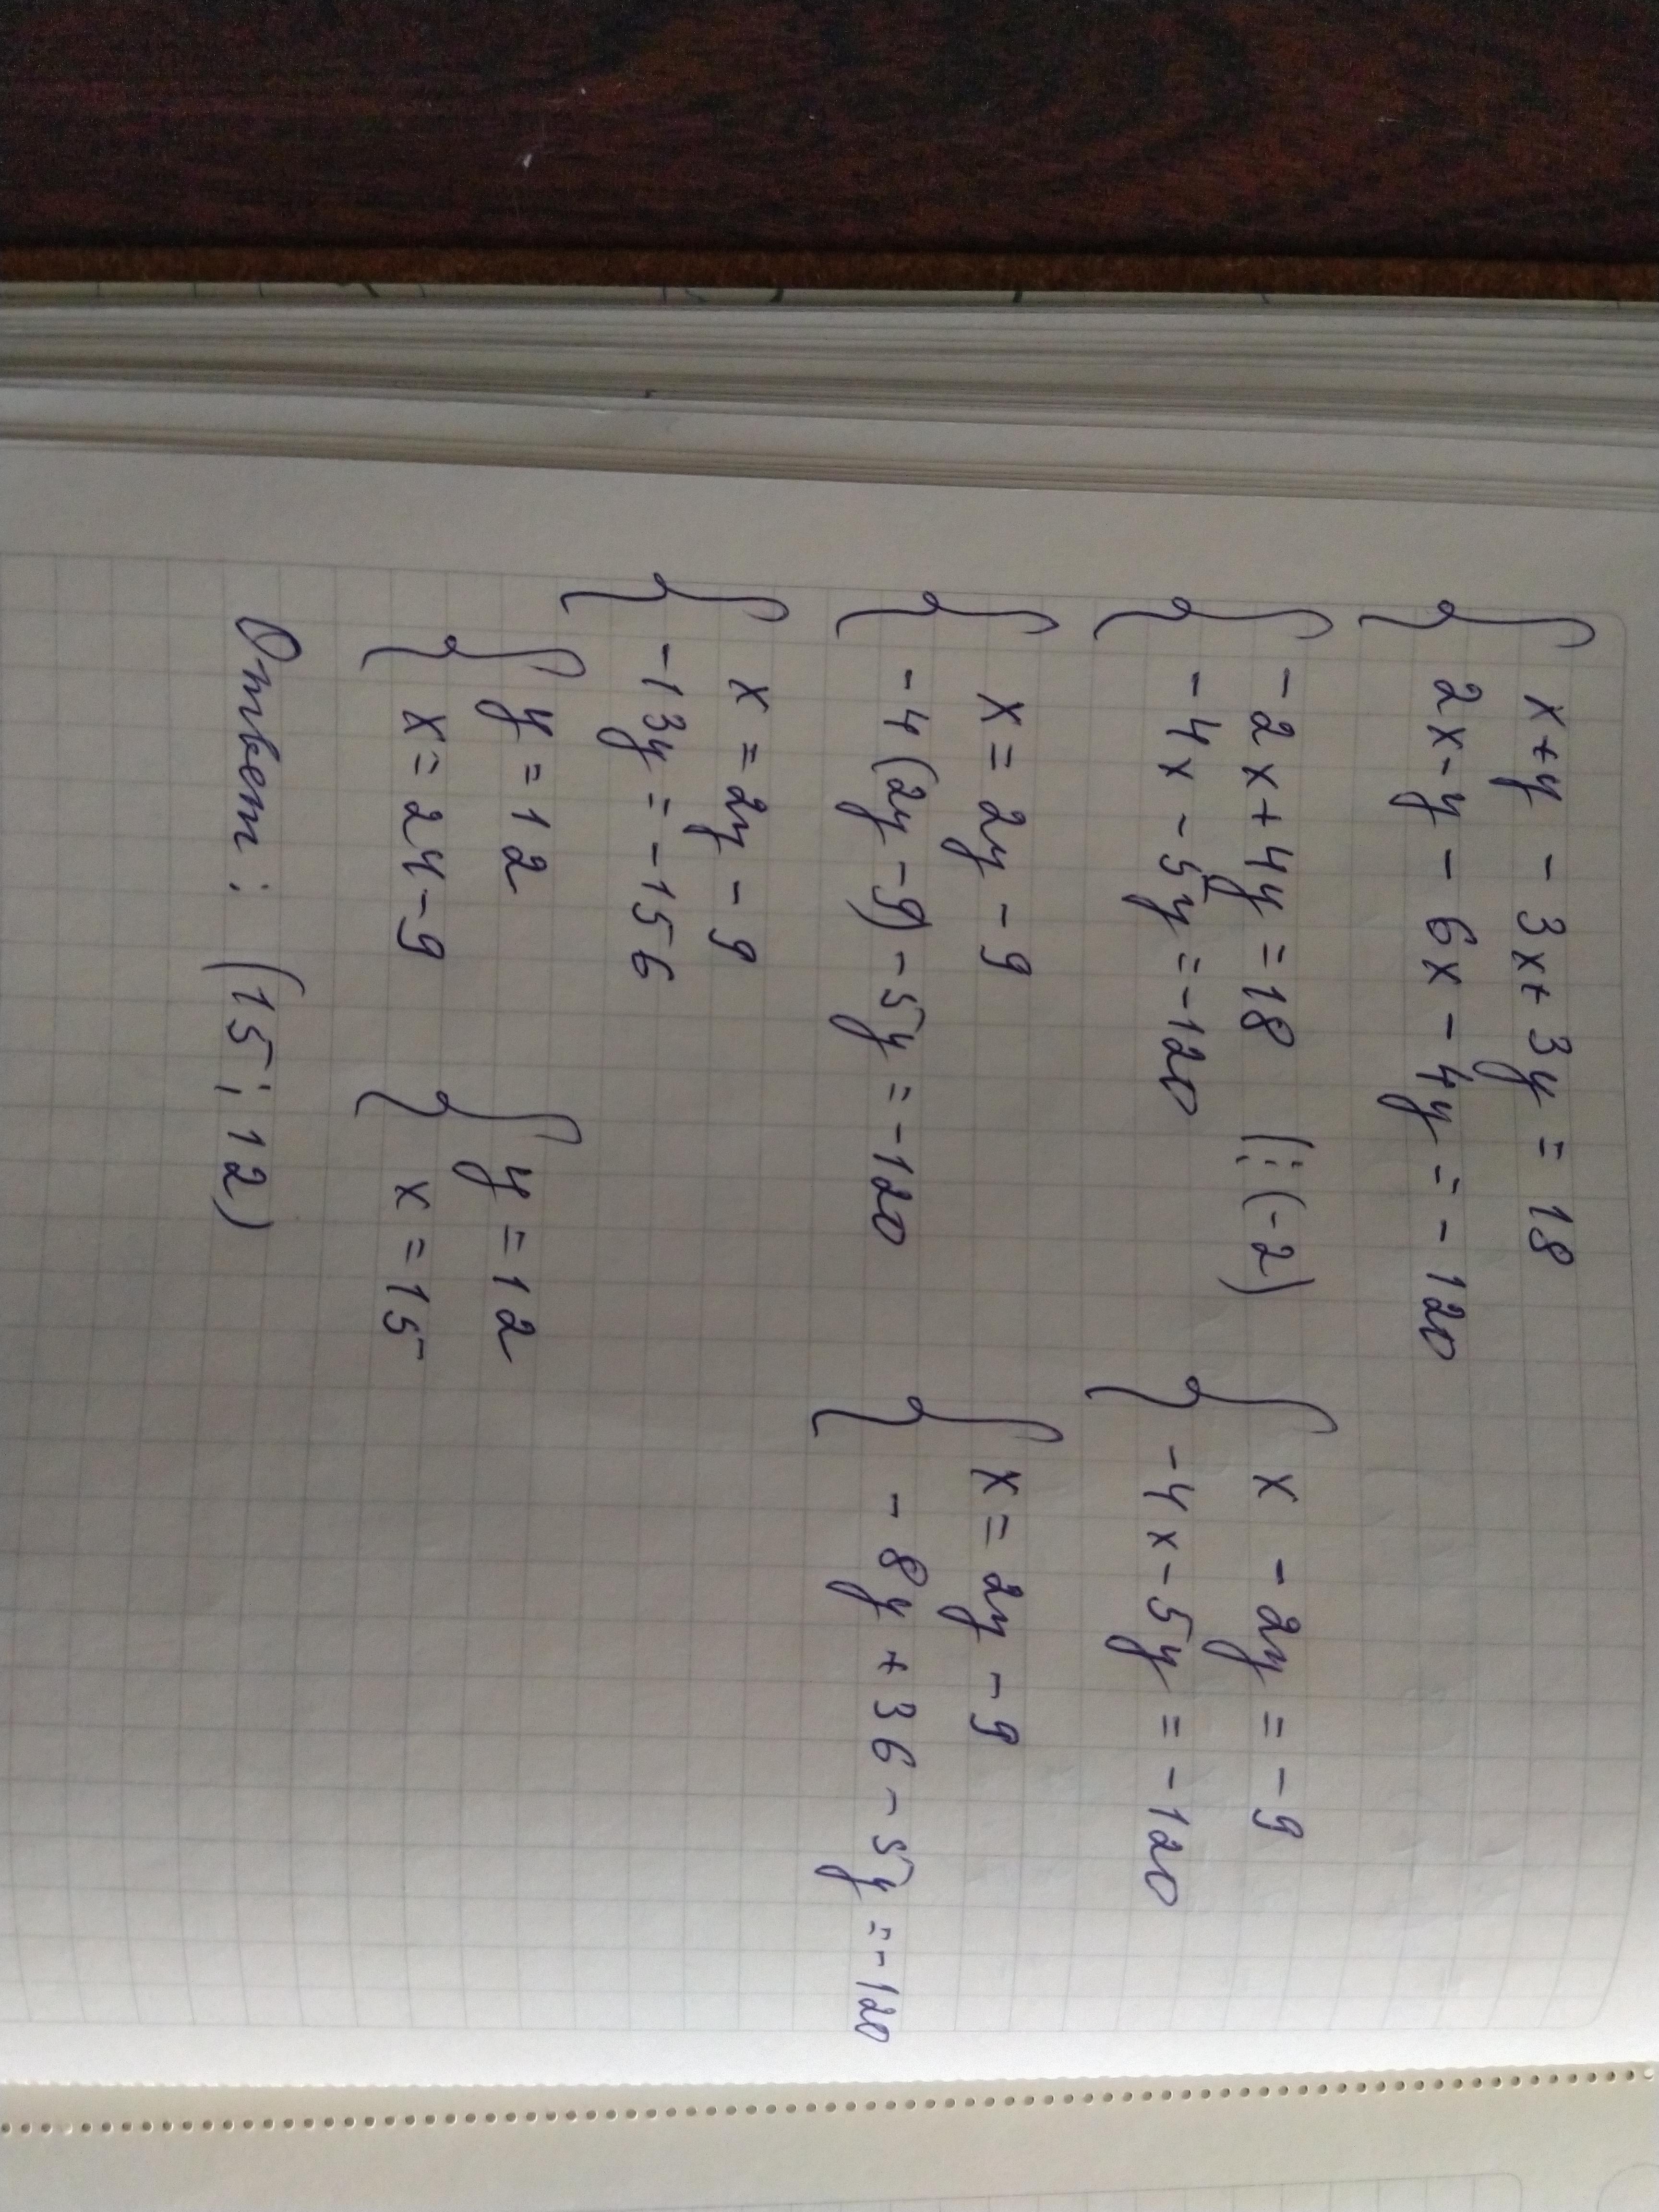 x+y - 3x+3y = 18
2x-y - 6x - 4y = - 120
-2x+4y=18 |:(-2)
-4x-5y=-120
x - 2y = -9
-4x-5y = -120
x = 2y - 9
-4(2y-9)-5y=-120
x=2y-9
- 8y + 36 - 5y = -120
x = 2y - 9
-13y = -156
y = 12
x = 24-9
y = 12
x = 15
Ответ: (15; 12)